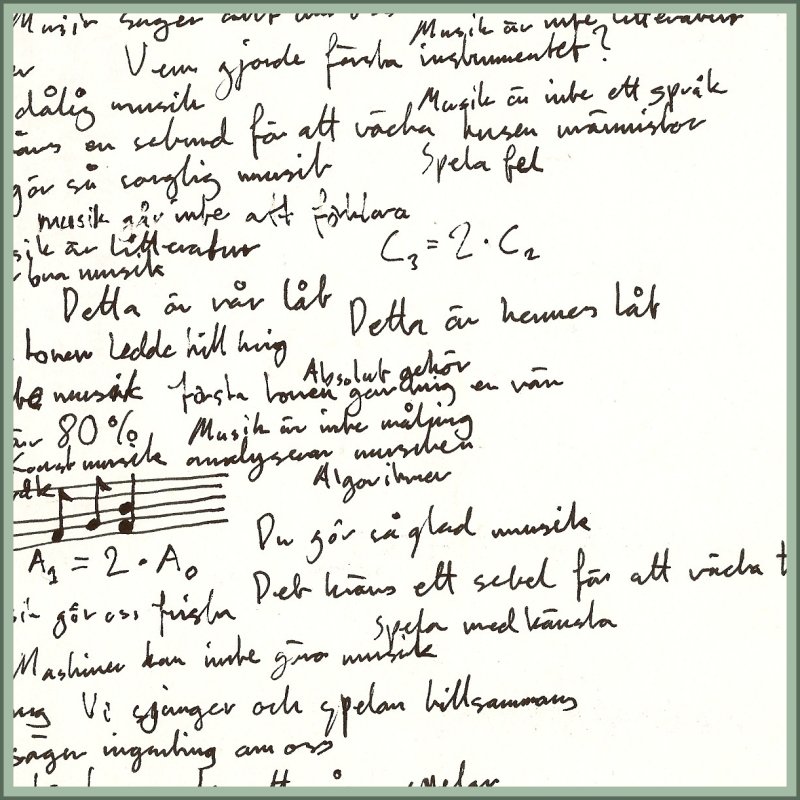 Musik säger allt om oss
Musik är inte litteratur
Vem gjorde första instrumentet?
dålig musik
Musik är inte ett språk
en sekund för att väcka tusen människor
gör så sorglig musik
Spela fel
musik går inte att förklara
sik är litteratur
C3 = 2 · C2
bra musik
Detta är vår låt
Detta är hennes låt
tonen ledde till krig
Absolut gehör
musik första tonen gav mig en vän
är 80%
Musik är inte målning
Konstmusik analyserar marschen
Algoritmer
Du gör så glad musik
A1 = 2 · A0
Det krävs ett sekel för att väcka t
sik gör oss friska
Spela med känsla
Maskiner kan inte göra musik
Vi sjunger och spelar tillsammans
säger ingenting om oss
spelar